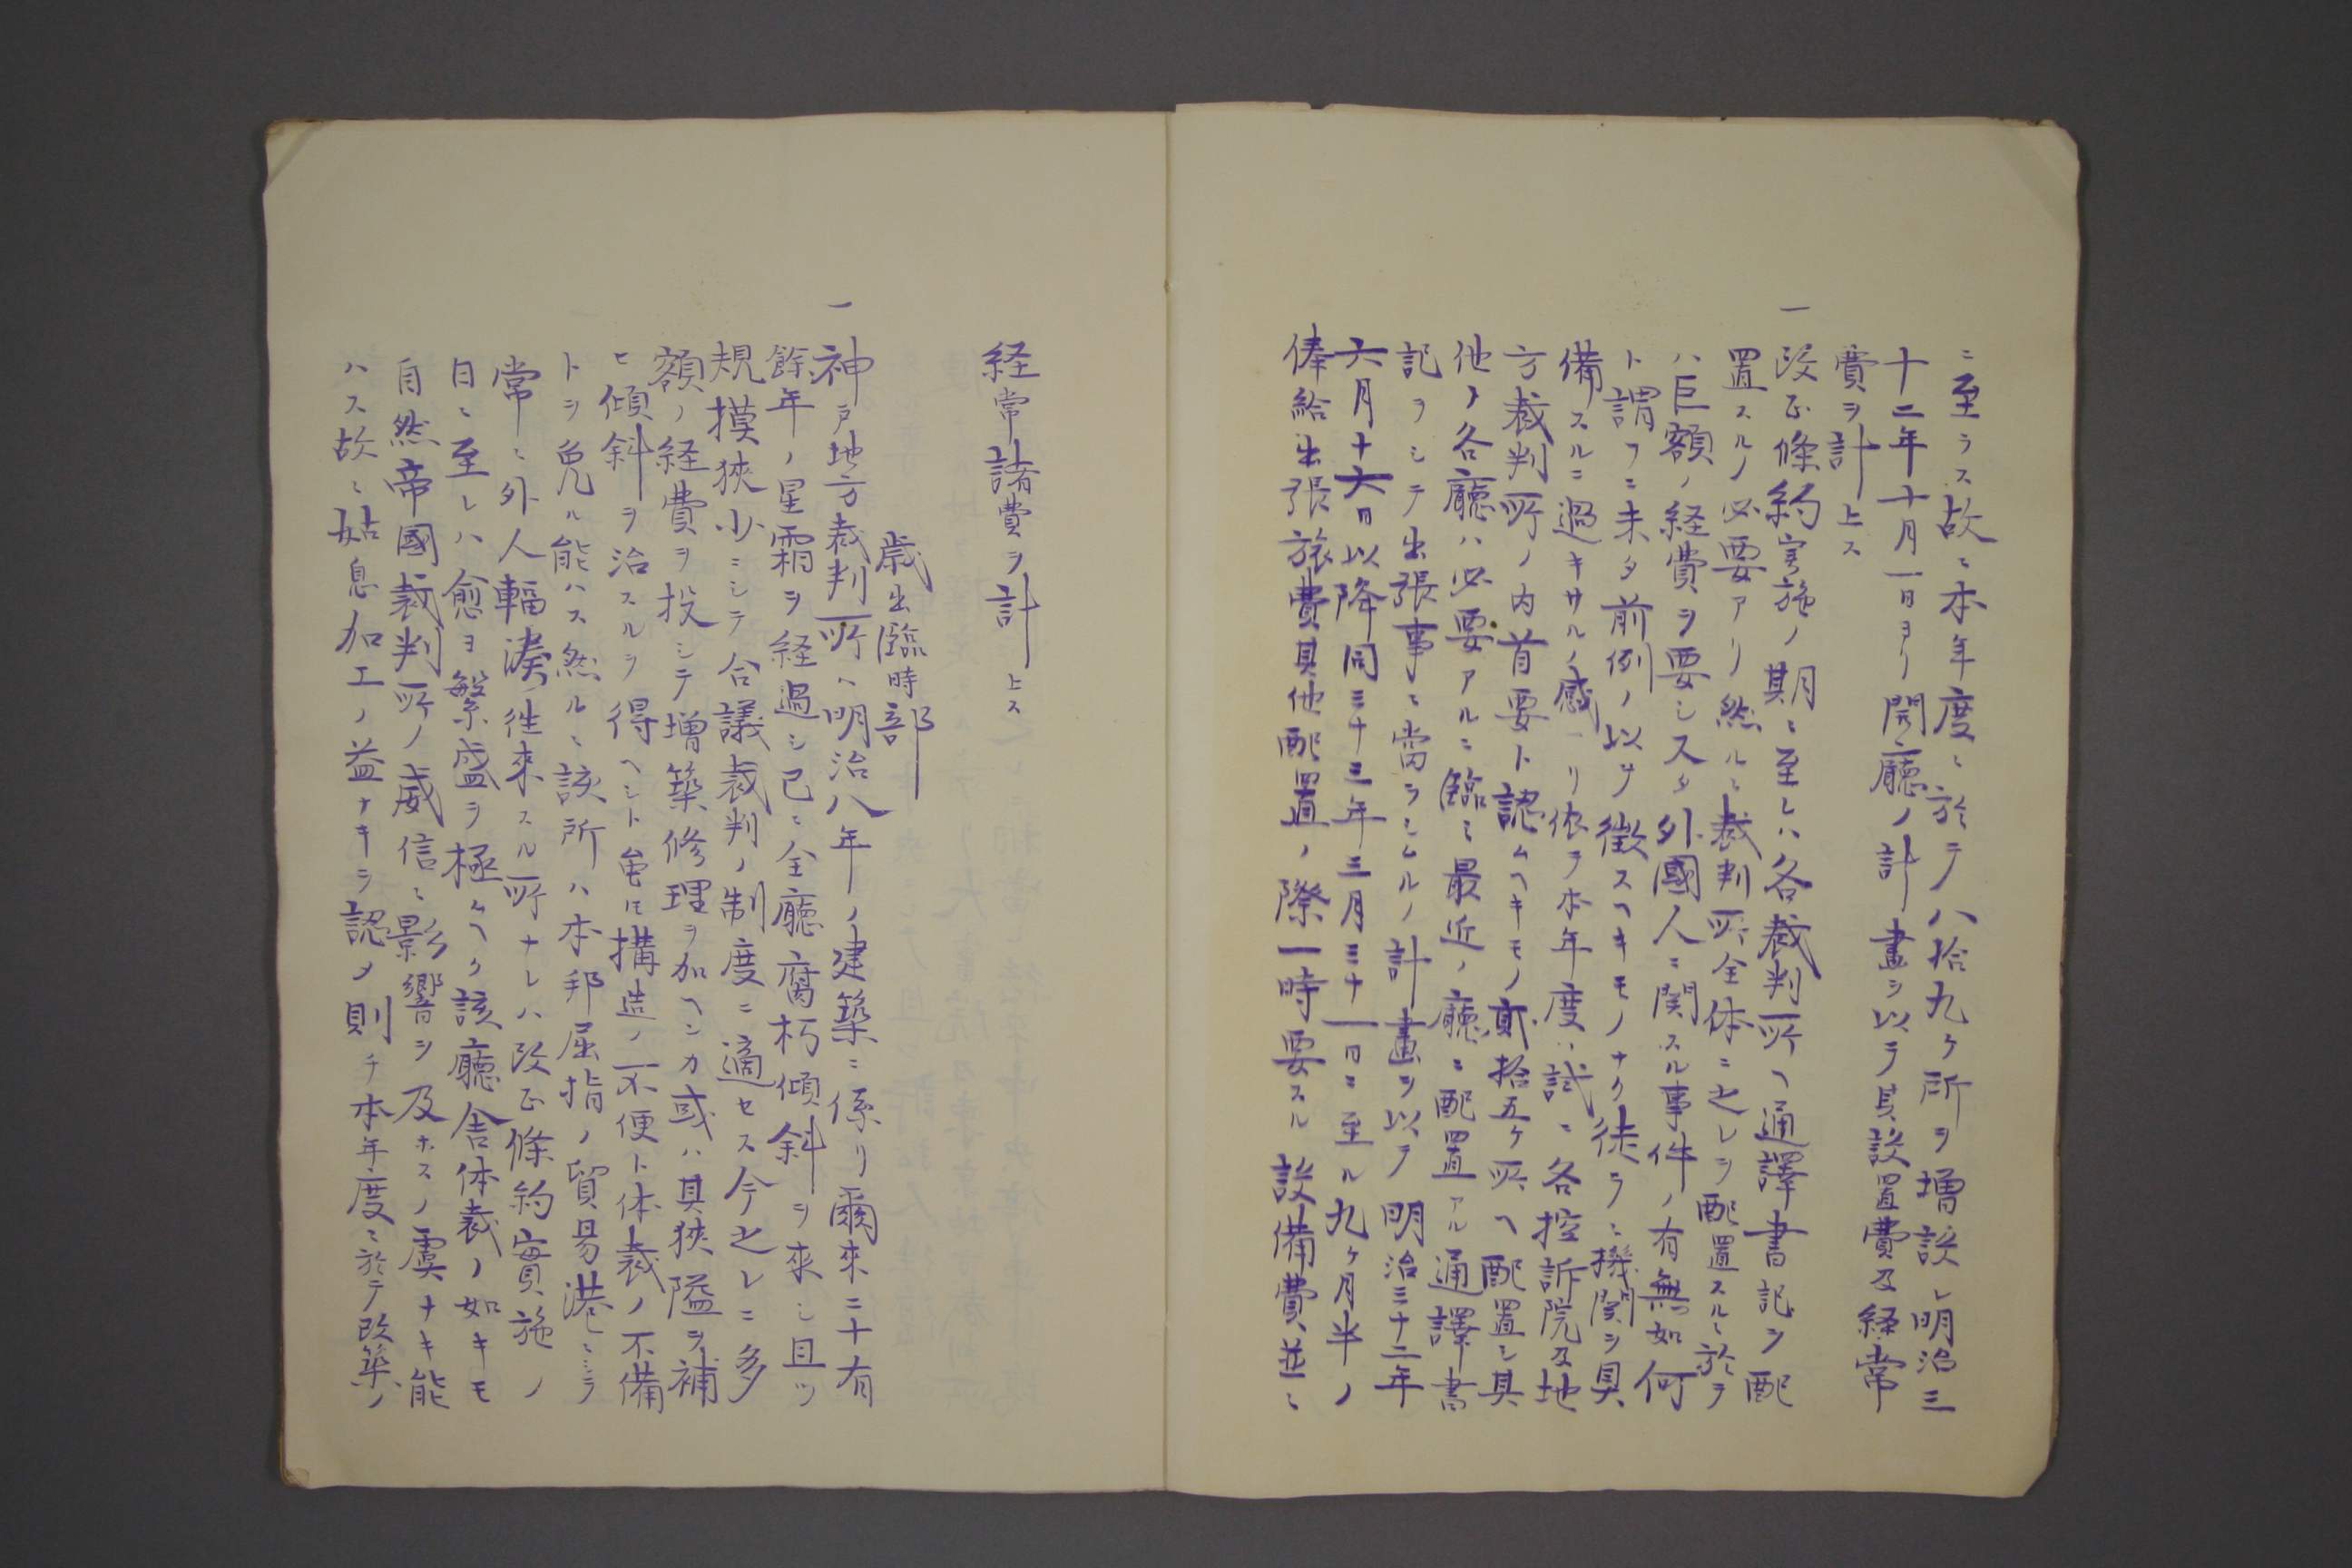 ニ至ラス故ニ本年度ニ於テ八拾九ケ所ヲ増設シ明治三
十二年十月一日ヨリ開廳ノ計畫ヲ以テ其設置費及経常
費ヲ計上ス
一改正條約実施ノ期ニ至レハ各裁判所ヘ通譯書記ヲ配
置スルノ必要アリ然ルニ裁判所全体ニ之レヲ配置スルニ於テ
ハ巨額ノ経費ヲ要シ又タ外國人ニ関スル事件ノ有無如何
ト謂フニ未タ前例ノ以テ徴スヘキモノナク徒ラニ機関ヲ具
備スルニ過キサルノ感アリ依テ本年度ハ試ニ各控訴院及地
方裁判所ノ内首要ト認ムヘキモノ貳拾五ケ所ヘ配置シ其
他ノ各廳ハ必要アルニ臨ミ最近ノ廳ニ配置アル通譯書
記ヲシテ出張事ニ當ラシムルノ計畫ヲ以テ明治三十二年
六月十六日以降同三十三年三月三十一日ニ至ル九ケ月半ノ
俸給出張旅費其他配置ノ際一時要スル設備費並ニ
経常諸費ヲ計上ス
歳出臨時部
一神戸地方裁判所ハ明治八年ノ建築ニ係リ爾来二十有
餘年ノ星霜ヲ経過シ已ニ全廳腐朽傾斜ヲ来シ且ツ
規摸狹少ニシテ合議裁判ノ制度ニ適セス今之レニ多
額ノ経費ヲ投シテ増築修理ヲ加ヘンカ或ハ其狹隘ヲ補
ヒ傾斜ヲ治スルヲ得ヘシト雖モ構造ノ不便ト体裁ノ不備
トヲ免ル能ハス然ルニ該所ハ本邦屈指ノ貿易港ニシテ
常ニ外人輻湊徃来スル所ナレハ改正條約實施ノ
日ニ至レハ愈ヨ繁盛ヲ極ムヘク該廳舎体裁ノ如キモ
自然帝國裁判所ノ威信ニ影響ヲ及ホスノ虞ナキ能
ハス故ニ姑息加工ノ益ナキヲ認メ則チ本年度ニ於テ改築ノ